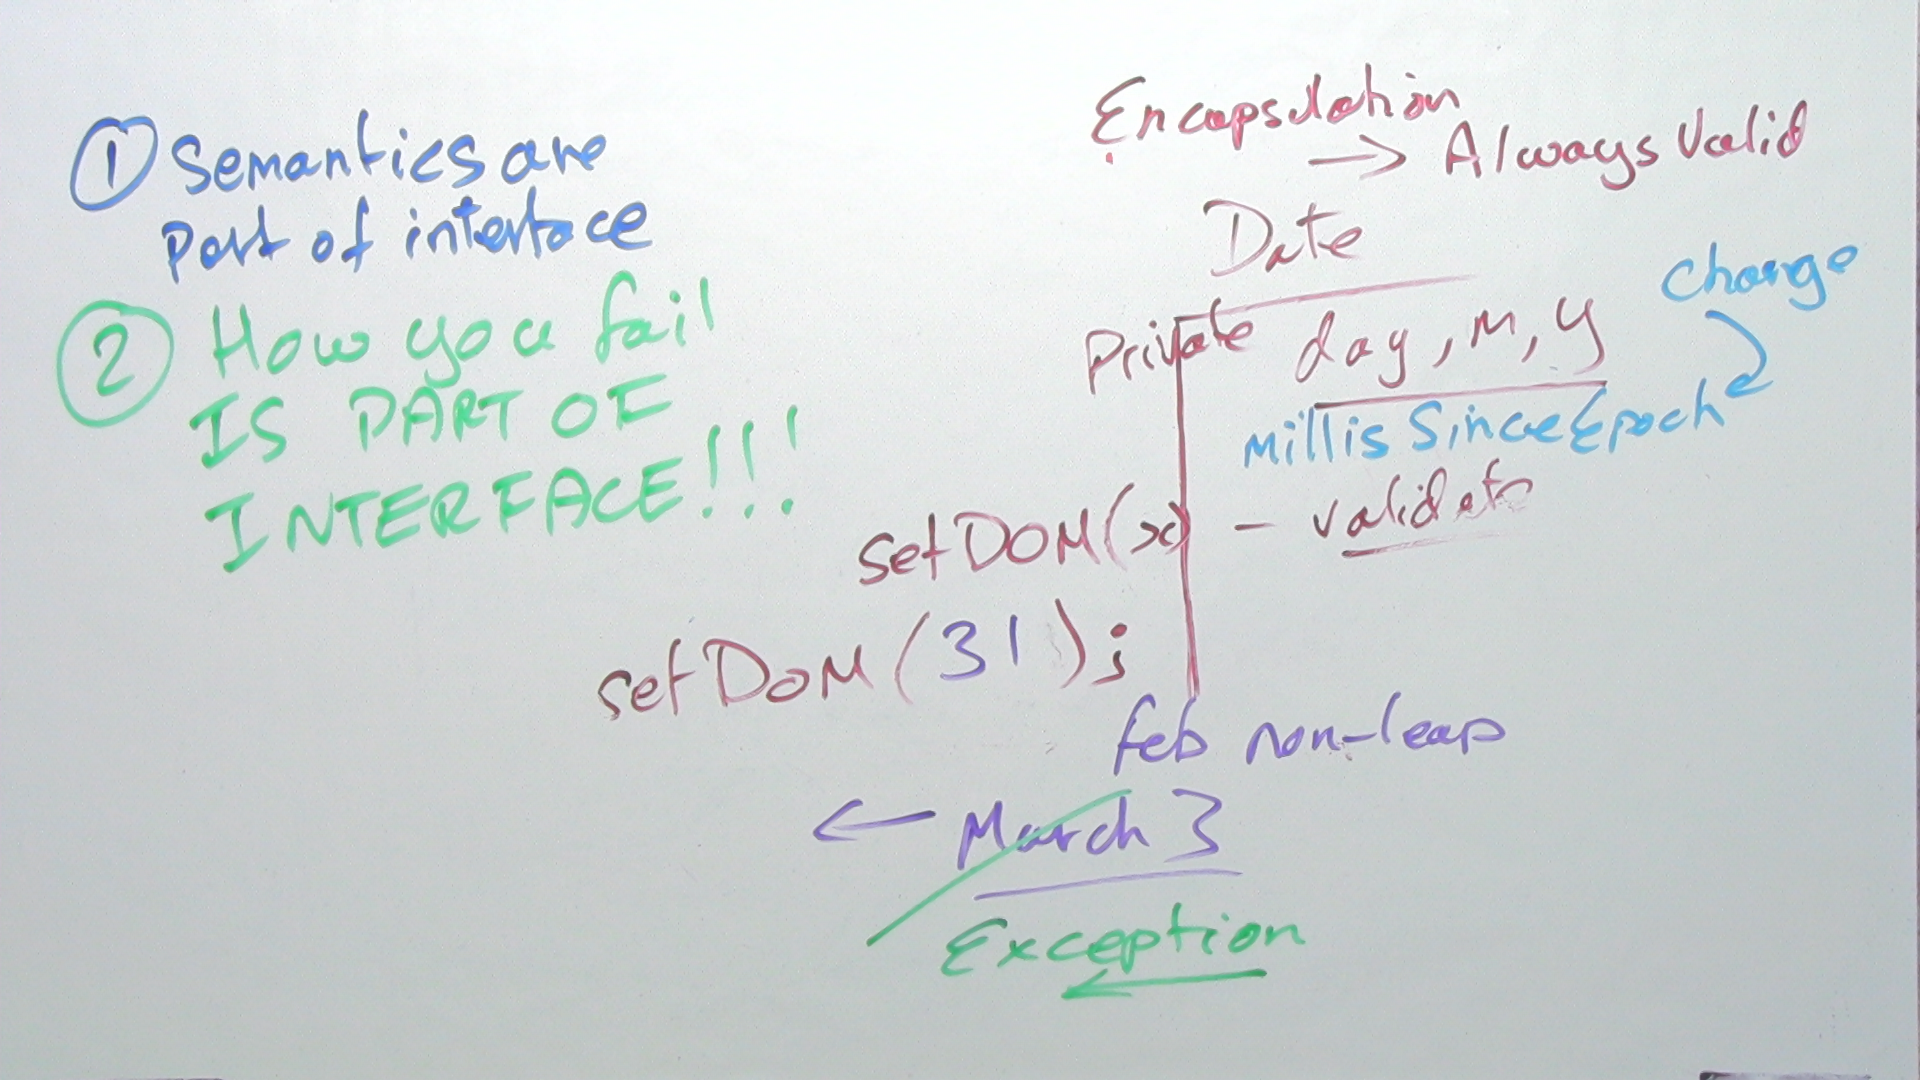 ① Semantics are
Part of interface
② How you fail
IS PART OF
INTERFACE!!!
Encapsulation
→ Always Valid
Date
Private day, m, y
change
millisSinceEpoch
setDOM(x) - validate
setDOM(31);
feb non-leap
← March 3
Exception